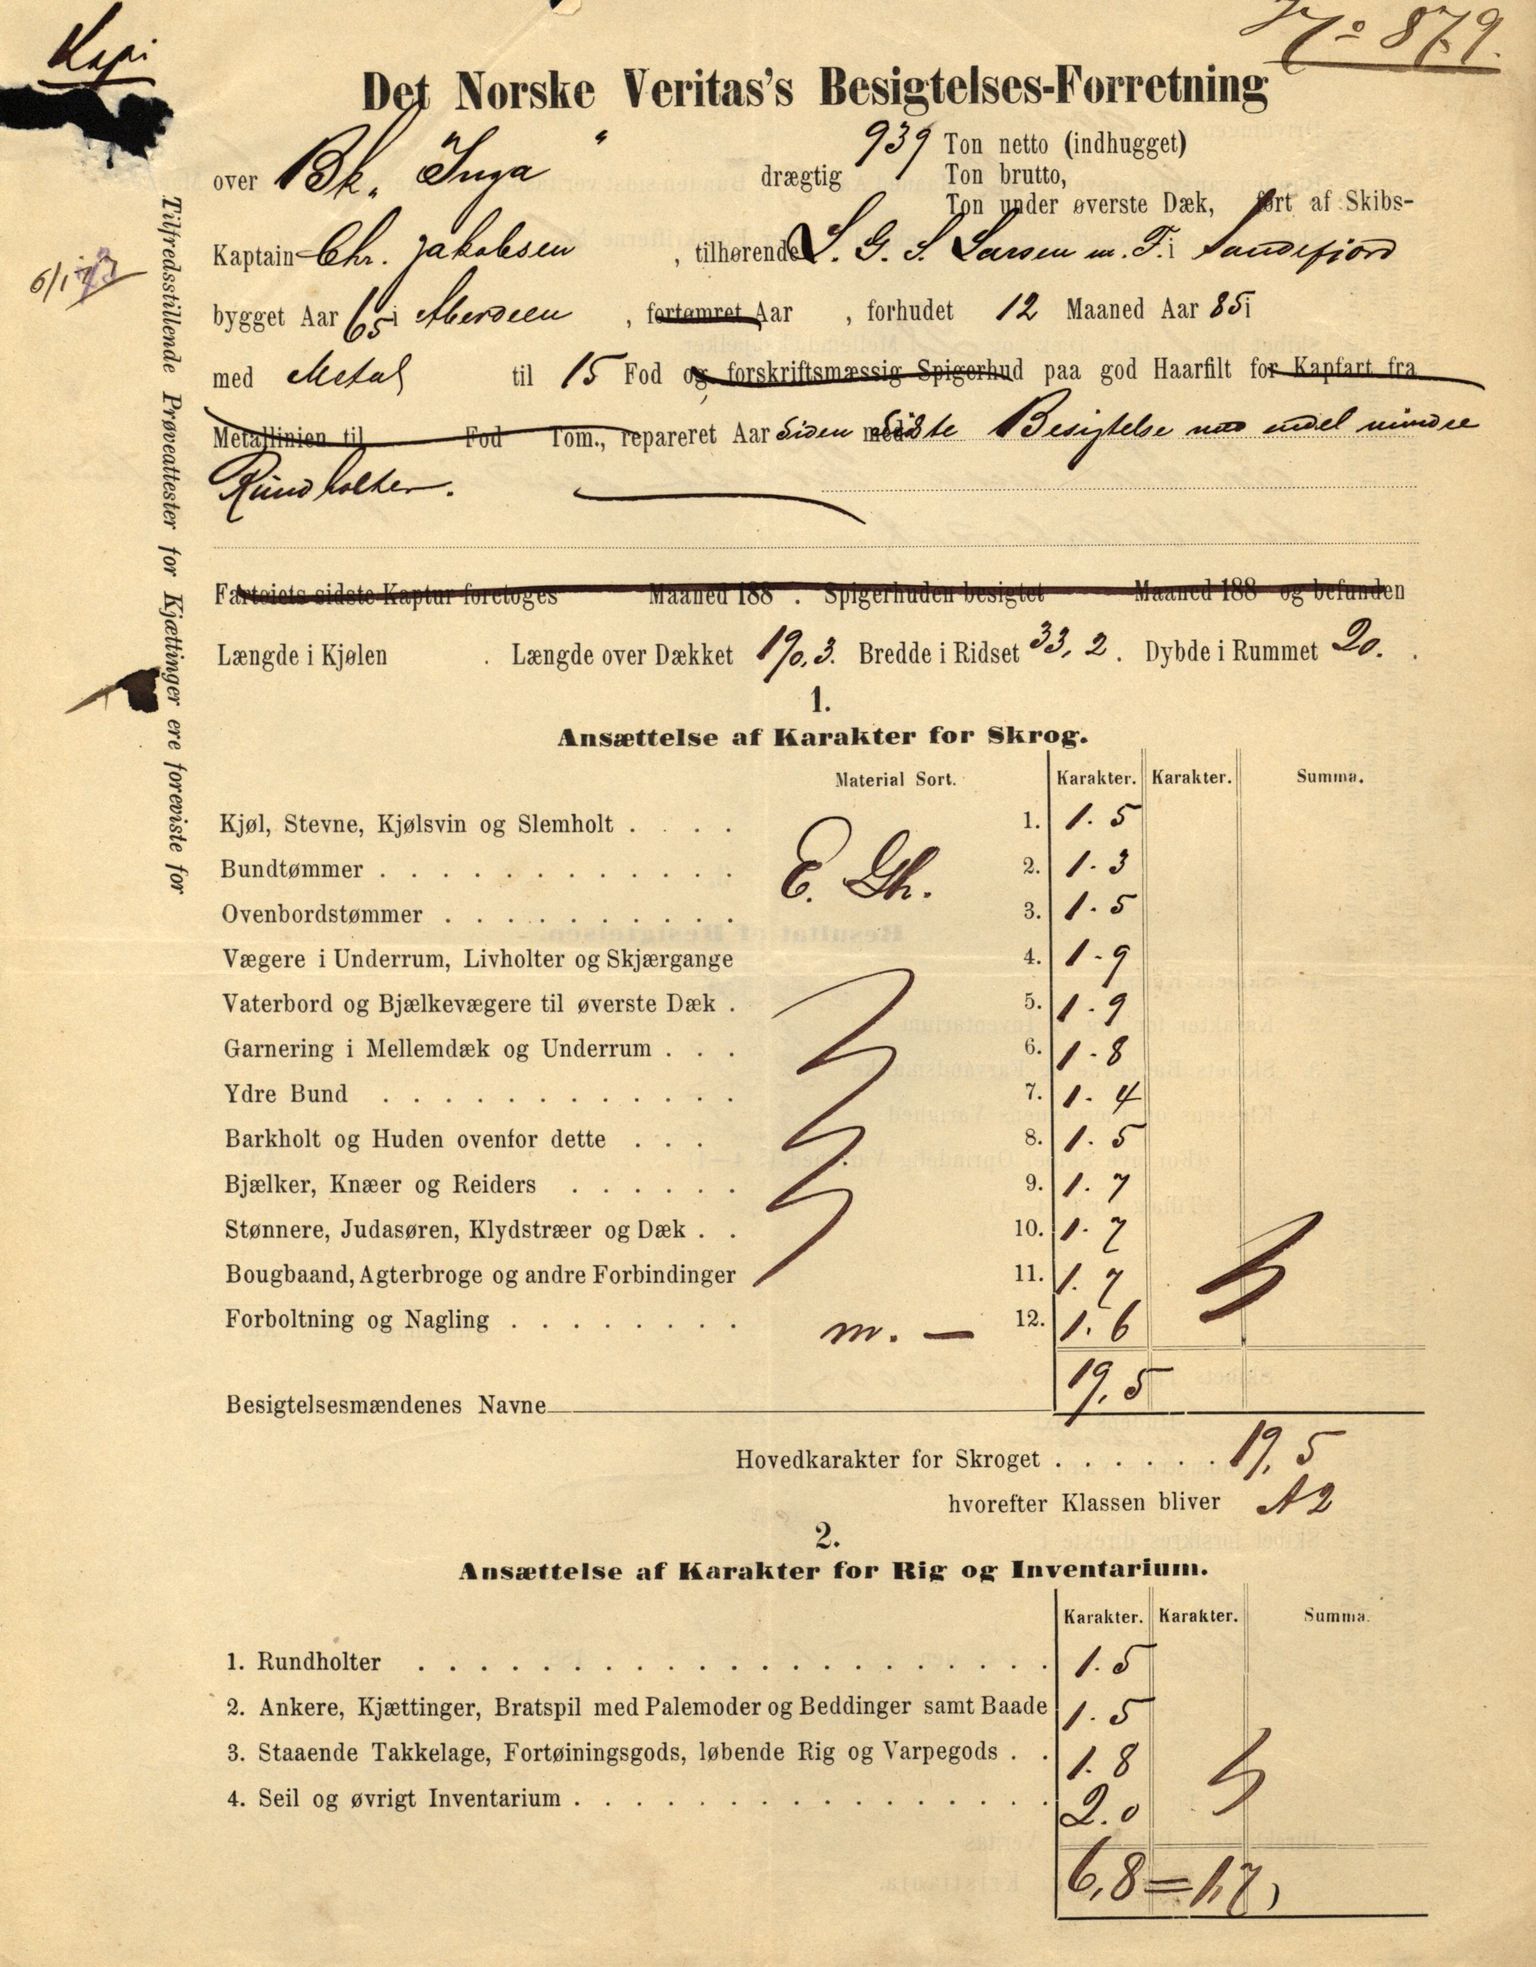 Kopi
No 879.
Det Norske Veritas's Besigtelses-Forretning
over Bk. "Inga" drægtig 939 Ton netto (indhugget)
Ton brutto,
Ton under øverste Dæk, ført af Skibs-
Kaptain Chr. Jakobsen, tilhørende L. G. S. Larsen m. F. i Sandefjord
bygget Aar 65 i Aberdeen, fortømret Aar , forhudet 12 Maaned Aar 85 i
med Metal til 15 Fod og forskriftsmæssig Spigerhud paa god Haarfilt for Kapfart fra
Metallinien til Fod Tom., repareret Aar Siden med sidste Besigtelse endel mindre
Rundholter.
Farteiets sidste Kaptur foretoges Maaned 188 . Spigerhuden besigtet Maaned 188 og befunden
Længde i Kjølen . Længde over Dækket 190,3. Bredde i Ridset 33,2. Dybde i Rummet 20. .
1.
Ansættelse af Karakter for Skrog.
Material Sort. Karakter. Karakter. Summa.
Kjøl, Stevne, Kjølsvin og Slemholt . . . . 1. 1.5
Bundtømmer . . . . . . . . . . . . E. Gh. 2. 1.3
Ovenbordstømmer . . . . . . . . . . 3. 1.5
Vægere i Underrum, Livholter og Skjærgange 4. 1.9
Vaterbord og Bjælkevægere til øverste Dæk . 5. 1.9
Garnering i Mellemdæk og Underrum . . . 6. 1.8
Ydre Bund . . . . . . . . . . . . 7. 1.4
Barkholt og Huden ovenfor dette . . . 8. 1.5
Bjælker, Knæer og Reiders . . . . . . 9. 1.7
Stønnere, Judasøren, Klydstræer og Dæk . . 10. 1.7
Bougbaand, Agterbroge og andre Forbindinger 11. 1.7
Forboltning og Nagling . . . . . . . . m. — 12. 1.6
19,5
Besigtelsesmændenes Navne
Hovedkarakter for Skroget . . . . . . 19,5
hvorefter Klassen bliver A2
2.
Ansættelse af Karakter for Rig og Inventarium.
Karakter. Karakter. Summa.
1. Rundholter . . . . . . . . . . . . . . . . . . . . 1.5
2. Ankere, Kjættinger, Bratspil med Palemoder og Beddinger samt Baade 1.5
3. Staaende Takkelage, Fortøiningsgods, løbende Rig og Varpegods . . 1.8
4. Seil og øvrigt Inventarium . . . . . . . . . . . . . . . . 2.0
6,8 = 1,7,
Tilfredsstillende Prøveattester for Kjættinger ere foreviste for